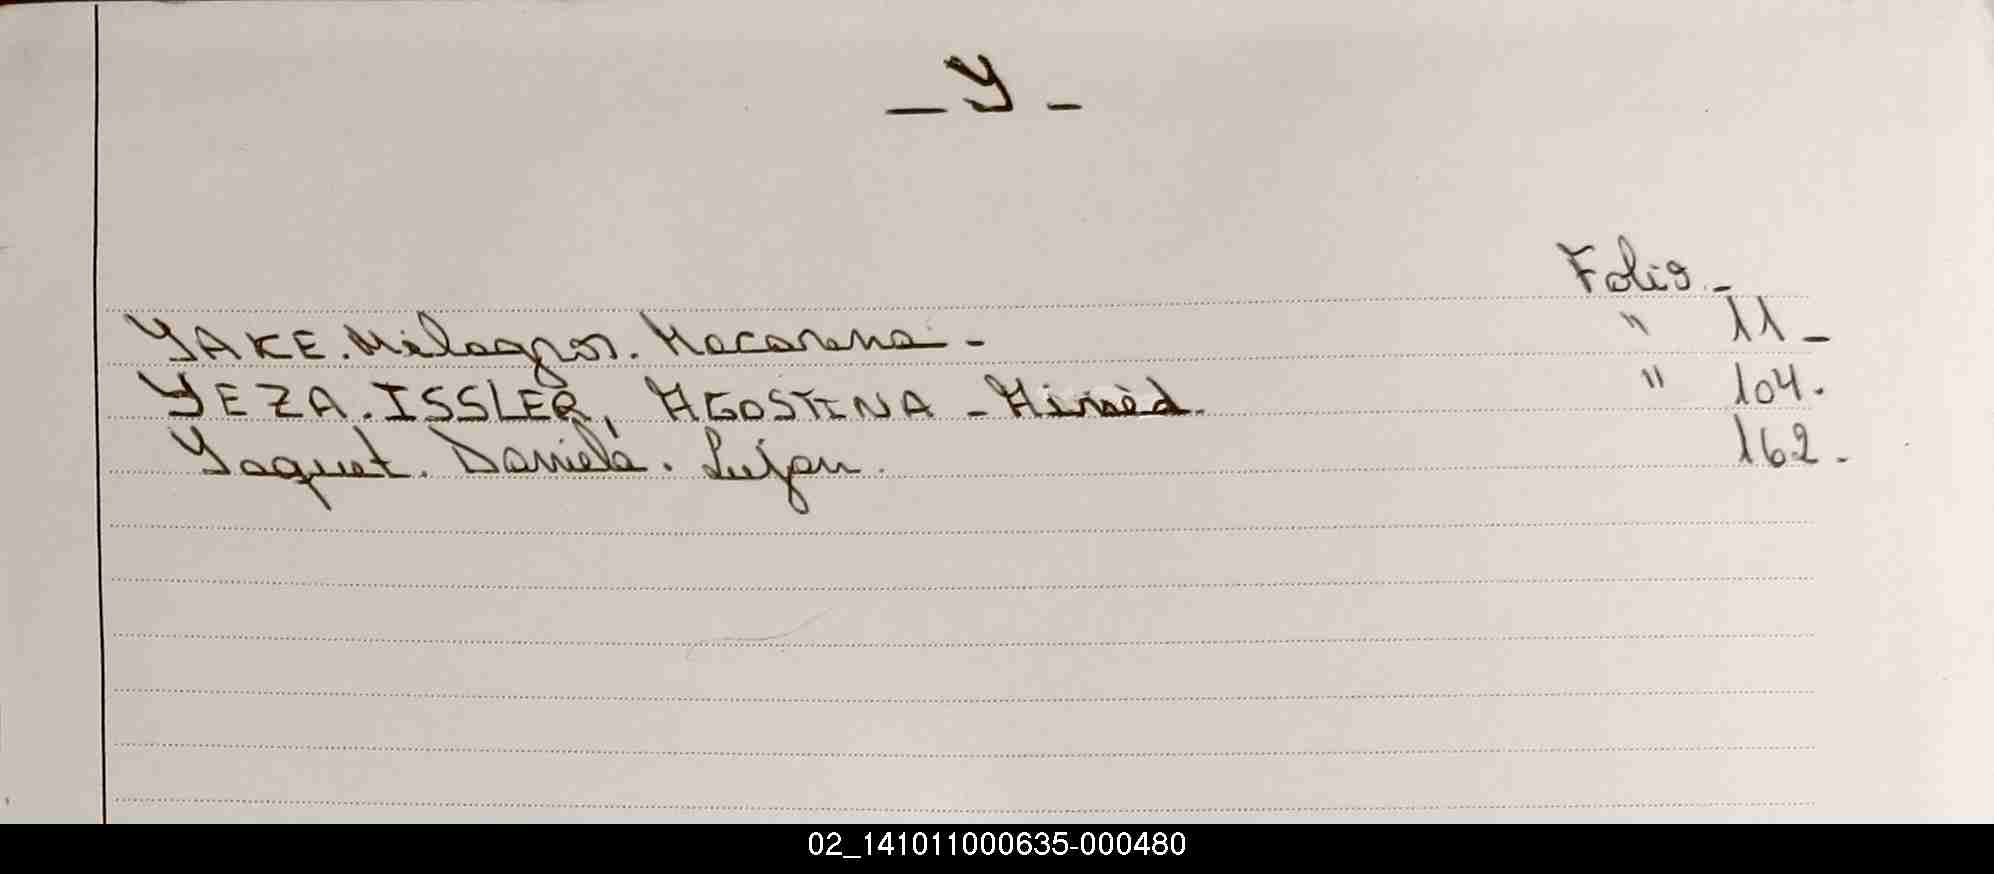 _ Y _
Folio._
YAKE. Milagros. Macarena. - " 11 _
YEZA. ISSLER, AGOSTINA - " 104.
Yaquet. Daniela. Lujan. 162.
02_141011000635-000480